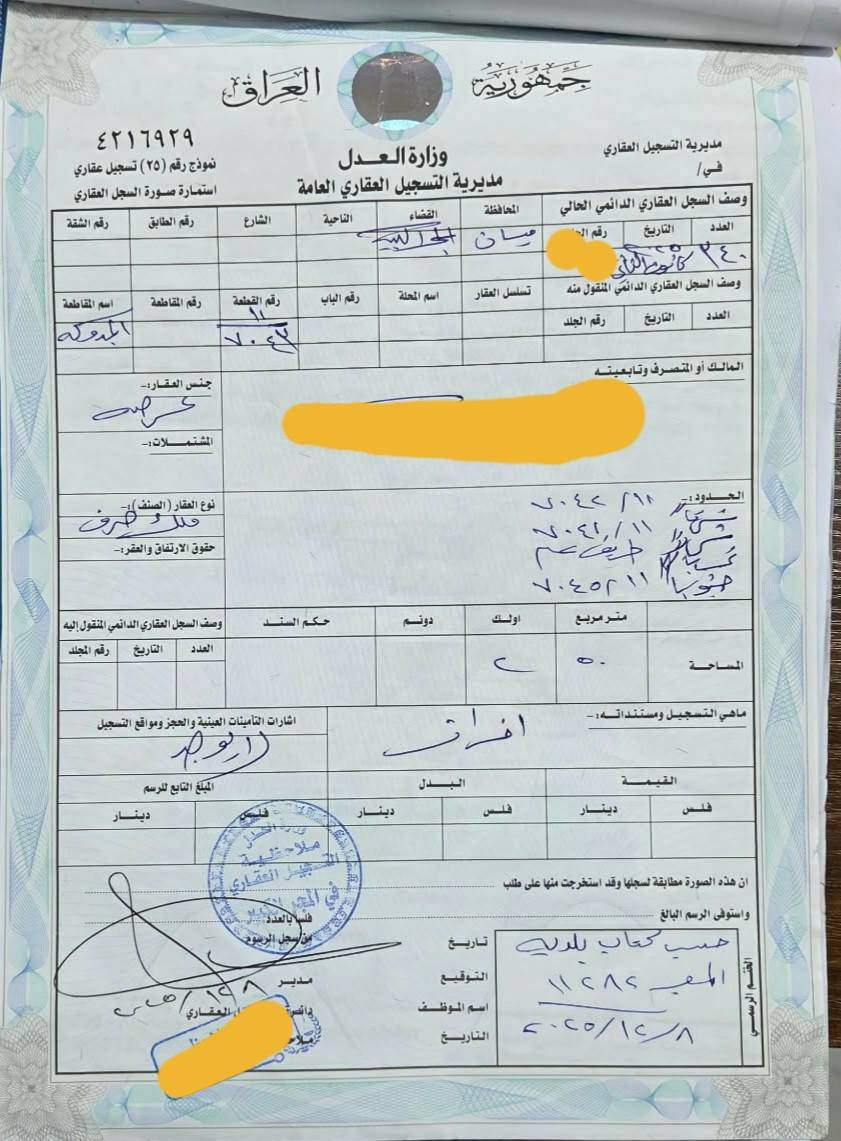 جمهورية العراق
وزارة العدل
مديرية التسجيل العقاري العامة
مديرية التسجيل العقاري
في/
٤٢١٦٩٢٩
نموذج رقم (٢٥) تسجيل عقاري
استمارة صورة السجل العقاري
وصف السجل العقاري الدائمي الحالي
المحافظة القضاء الناحية الشارع رقم الطابق رقم الشقة
العدد التاريخ رقم
ميسان
٣٤٠ كانون الثاني
وصف السجل العقاري الدائمي المنقول منه
تسلسل العقار اسم المحلة رقم الباب رقم القطعة رقم المقاطعة اسم المقاطعة
العدد التاريخ رقم الجلد
١١
٧٠٤٣
المالك أو المتصرف وتابعيته
جنس العقار:-
عرصه
المشتملات:-
الحدود:-
٧٠٤٢/١١
شرقا ٧٠٤١/١١
طريق عام
جنوبا ٧٠٤٥/١١
نوع العقار (الصنف):-
ملك صرف
حقوق الارتفاق والعقر:-
متر مربع اولك دونم حكم السند وصف السجل العقاري الدائمي المنقول إليه
العدد التاريخ رقم المجلد
المساحة ٥٠ ٢
ماهي التسجيل ومستنداته:-
افراز
اشارات التأمينات العينية والحجز ومواقع التسجيل
لا يوجد
القيمة البدل المبلغ التابع للرسم
فلس دينار فلس دينار فلس دينار
وزارة العدل
ملاحظية
التسجيل العقاري
في المجر الكبير
ان هذه الصورة مطابقة لسجلها وقد استخرجت منها على طلب
واستوفى الرسم البالغ
فلسا بالعدد
من سجل الرسوم
تاريخ
التوقيع
اسم الموظف
التاريخ
مدير
١٢/٨
العقاري
الختم الرسمي
حسب كتاب بلدية
المجر ١١٢٨٢
٢٠٢٥/١٢/٨